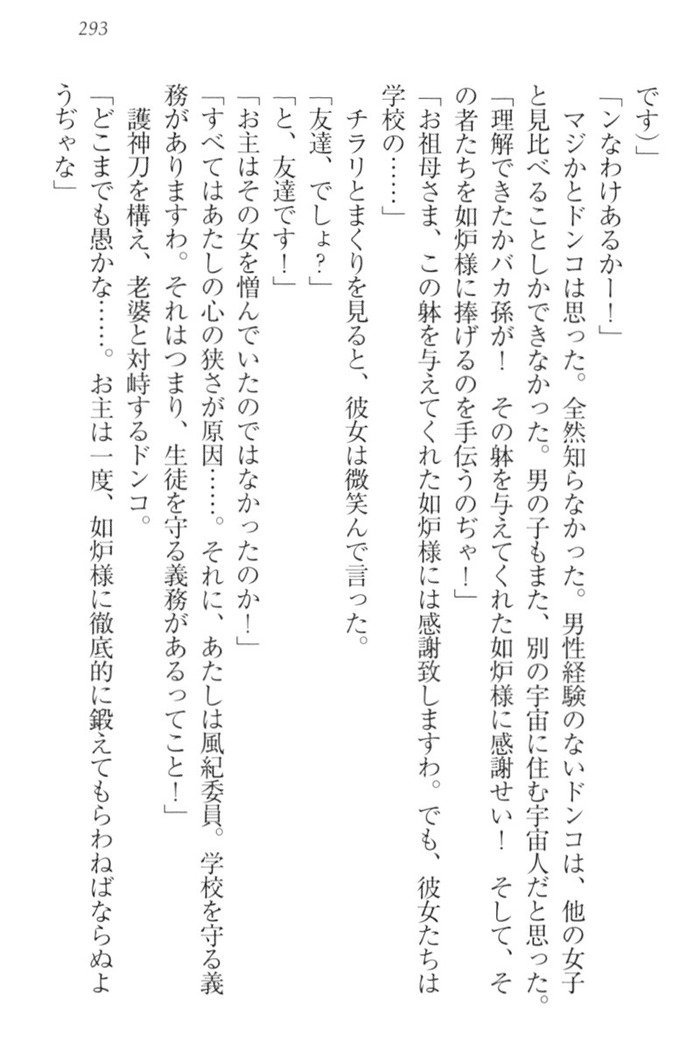 293
です)」
「ンなわけあるかー!」
マジかとドンコは思った。全然知らなかった。男性経験のないドンコは、他の女子
と見比べることしかできなかった。男の子もまた、別の宇宙に住む宇宙人だと思った。
「理解できたかバカ孫が! その躰を与えてくれた如炉様に感謝せい! そして、そ
の者たちを如炉様に捧げるのを手伝うのぢゃ!」
「お祖母さま、この躰を与えてくれた如炉様には感謝致しますわ。でも、彼女たちは
学校の……」
チラリとまくりを見ると、彼女は微笑んで言った。
「友達、でしょ?」
「と、友達です!」
「お主はその女を憎んでいたのではなかったのか!」
「すべてはあたしの心の狭さが原因……。それに、あたしは風紀委員。学校を守る義
務がありますわ。それはつまり、生徒を守る義務があるってこと!」
護神刀を構え、老婆と対峙するドンコ。
「どこまでも愚かな……。お主は一度、如炉様に徹底的に鍛えてもらわねばならぬよ
うぢゃな」